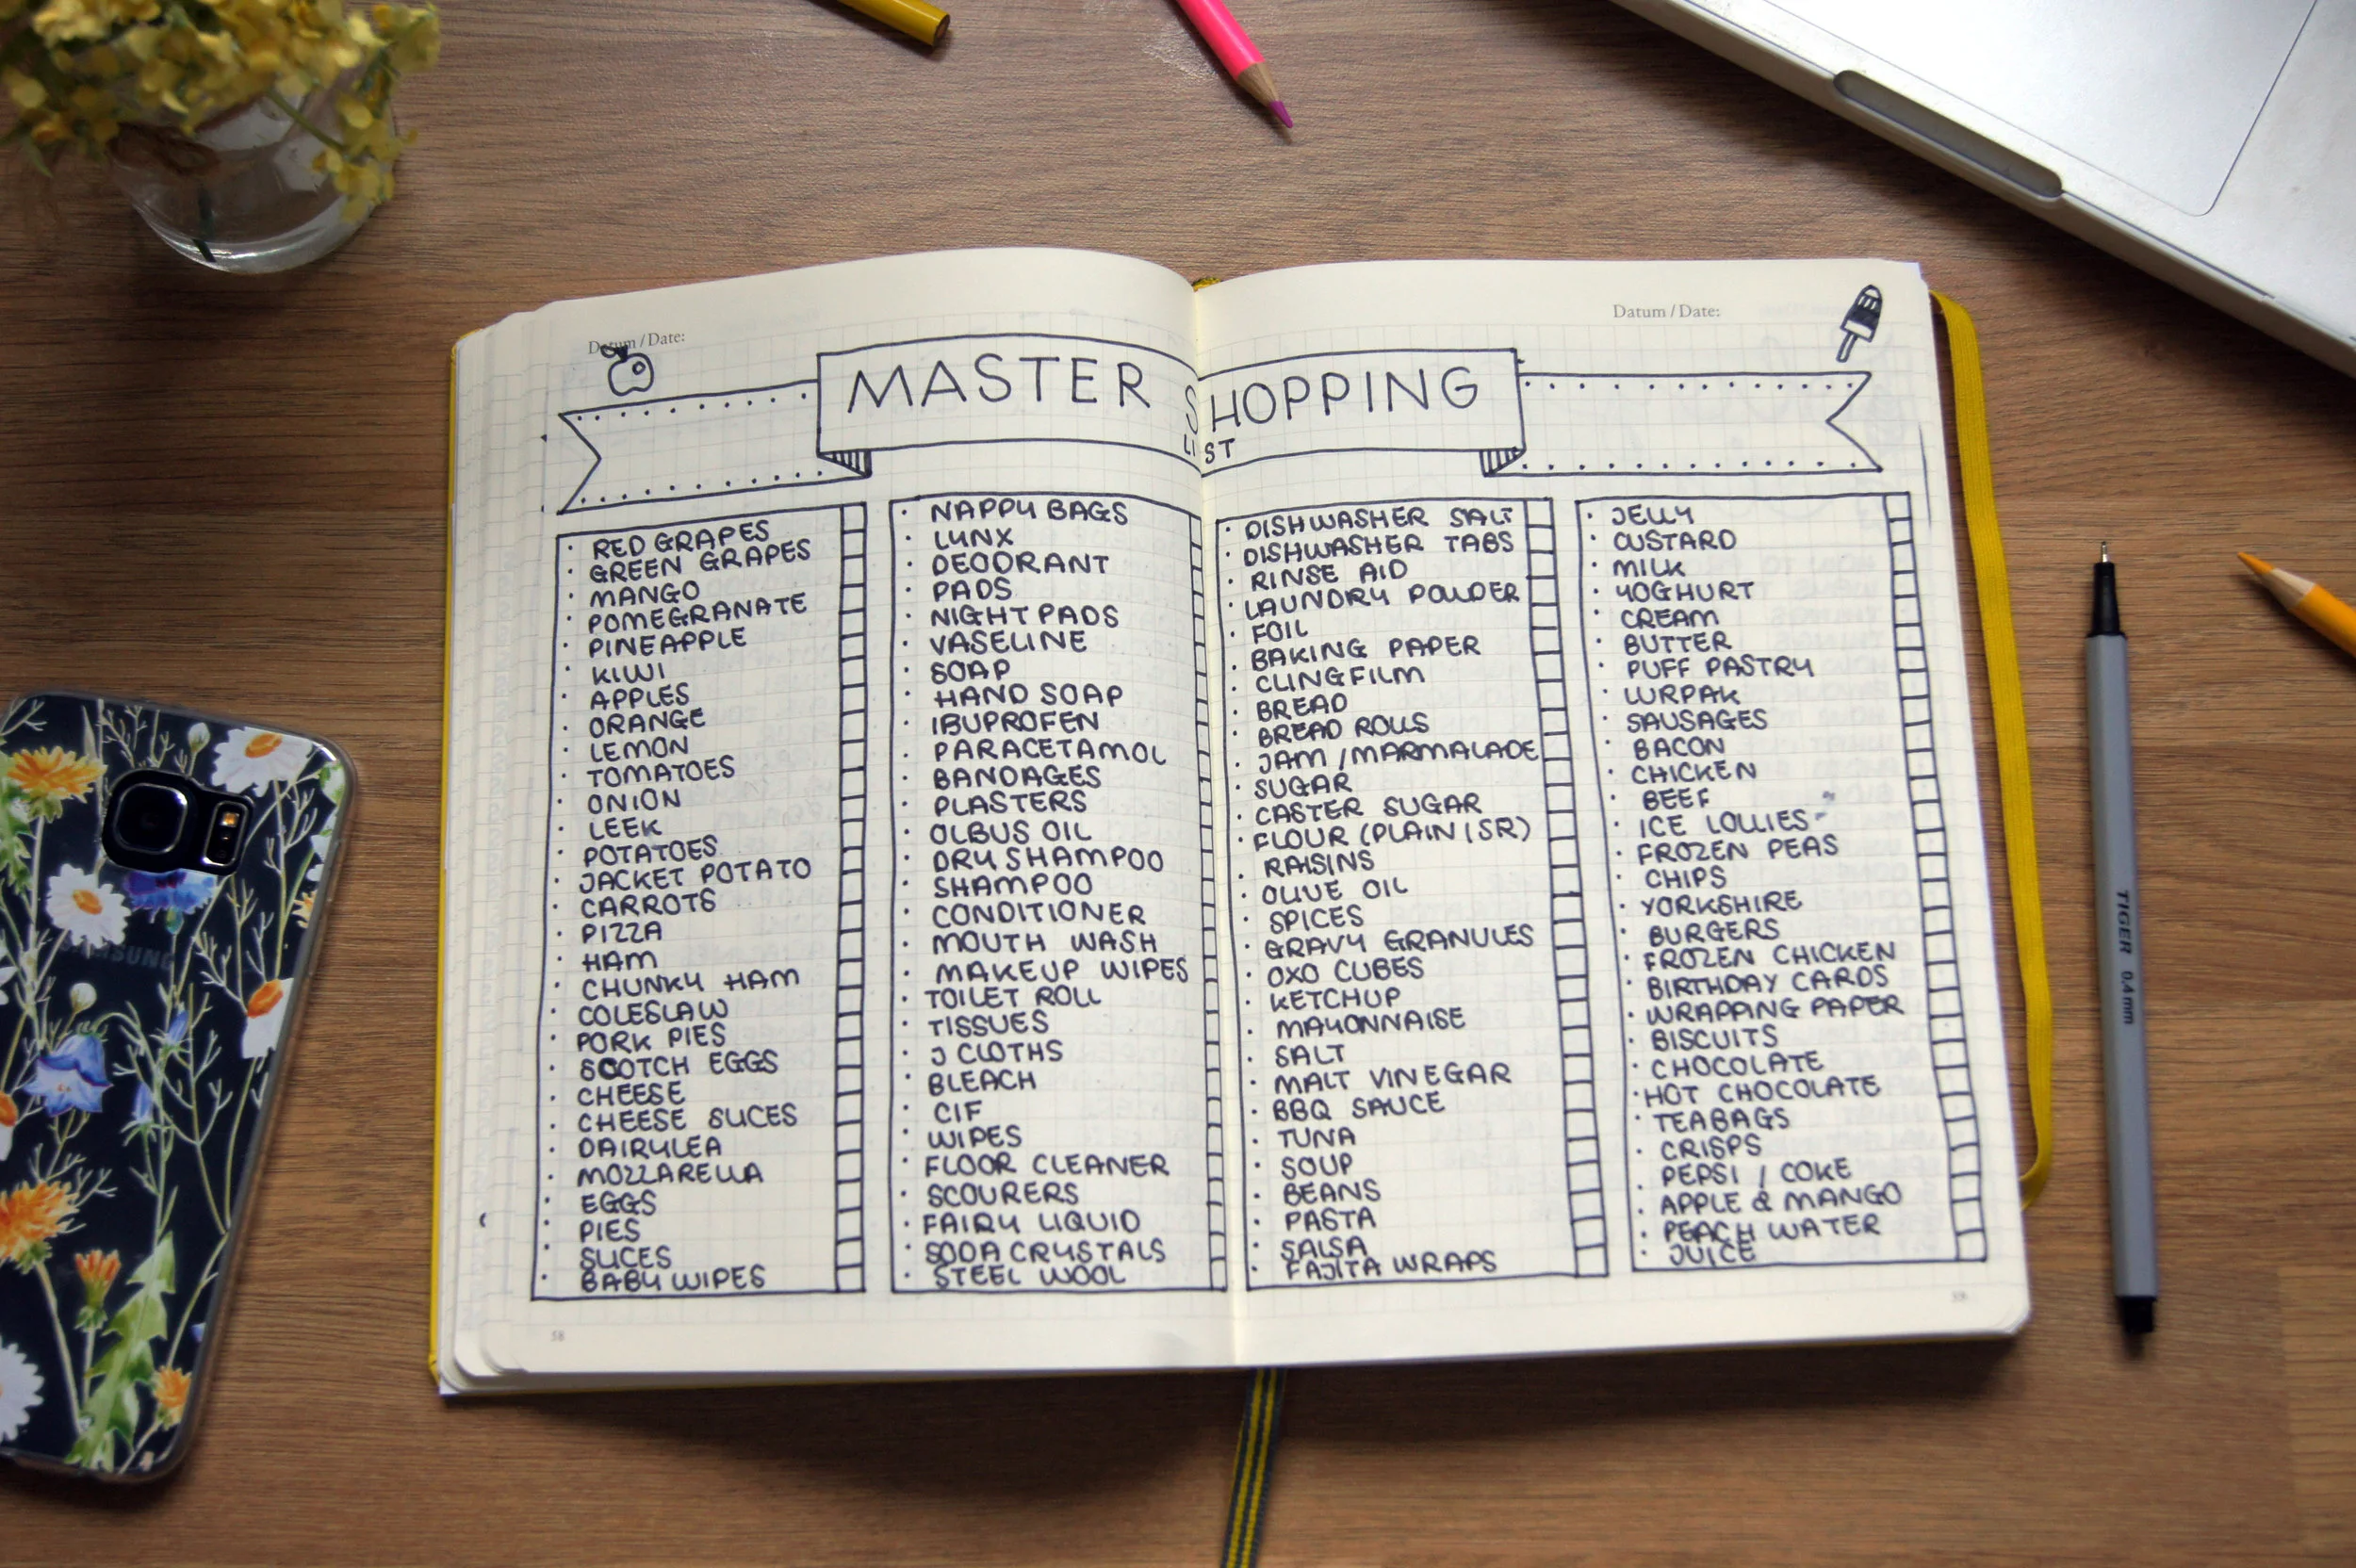 Datum / Date:
Datum / Date:
MASTER SHOPPING
LIST
· RED GRAPES
· GREEN GRAPES
· MANGO
· POMEGRANATE
· PINEAPPLE
· KIWI
· APPLES
· ORANGE
· LEMON
· TOMATOES
· ONION
· LEEK
· POTATOES
· JACKET POTATO
· CARROTS
· PIZZA
· HAM
· CHUNKY HAM
· COLESLAW
· PORK PIES
· SCOTCH EGGS
· CHEESE
· CHEESE SLICES
· DAIRYLEA
· MOZZARELLA
· EGGS
· PIES
· SLICES
· BABY WIPES
· NAPPY BAGS
· LYNX
· DEODRANT
· PADS
· NIGHT PADS
· VASELINE
· SOAP
· HAND SOAP
· IBUPROFEN
· PARACETAMOL
· BANDAGES
· PLASTERS
· OLBUS OIL
· DRY SHAMPOO
· SHAMPOO
· CONDITIONER
· MOUTH WASH
· MAKEUP WIPES
· TOILET ROLL
· TISSUES
· J CLOTHS
· BLEACH
· CIF
· WIPES
· FLOOR CLEANER
· SCOURERS
· FAIRY LIQUID
· SODA CRYSTALS
· STEEL WOOL
· DISHWASHER SALT
· DISHWASHER TABS
· RINSE AID
· LAUNDRY POWDER
· FOIL
· BAKING PAPER
· CLINGFILM
· BREAD
· BREAD ROLLS
· JAM / MARMALADE
· SUGAR
· CASTER SUGAR
· FLOUR (PLAIN | SR)
· RAISINS
· OLIVE OIL
· SPICES
· GRAVY GRANULES
· OXO CUBES
· KETCHUP
· MAYONNAISE
· SALT
· MALT VINEGAR
· BBQ SAUCE
· TUNA
· SOUP
· BEANS
· PASTA
· SALSA
· FAJITA WRAPS
· JELLY
· CUSTARD
· MILK
· YOGHURT
· CREAM
· BUTTER
· PUFF PASTRY
· LURPAK
· SAUSAGES
· BACON
· CHICKEN
· BEEF
· ICE LOLLIES
· FROZEN PEAS
· CHIPS
· YORKSHIRE
· BURGERS
· FROZEN CHICKEN
· BIRTHDAY CARDS
· WRAPPING PAPER
· BISCUITS
· CHOCOLATE
· HOT CHOCOLATE
· TEABAGS
· CRISPS
· PEPSI / COKE
· APPLE & MANGO
· PEACH WATER
· JUICE
58
59
SAMSUNG
TIGER 0.4mm